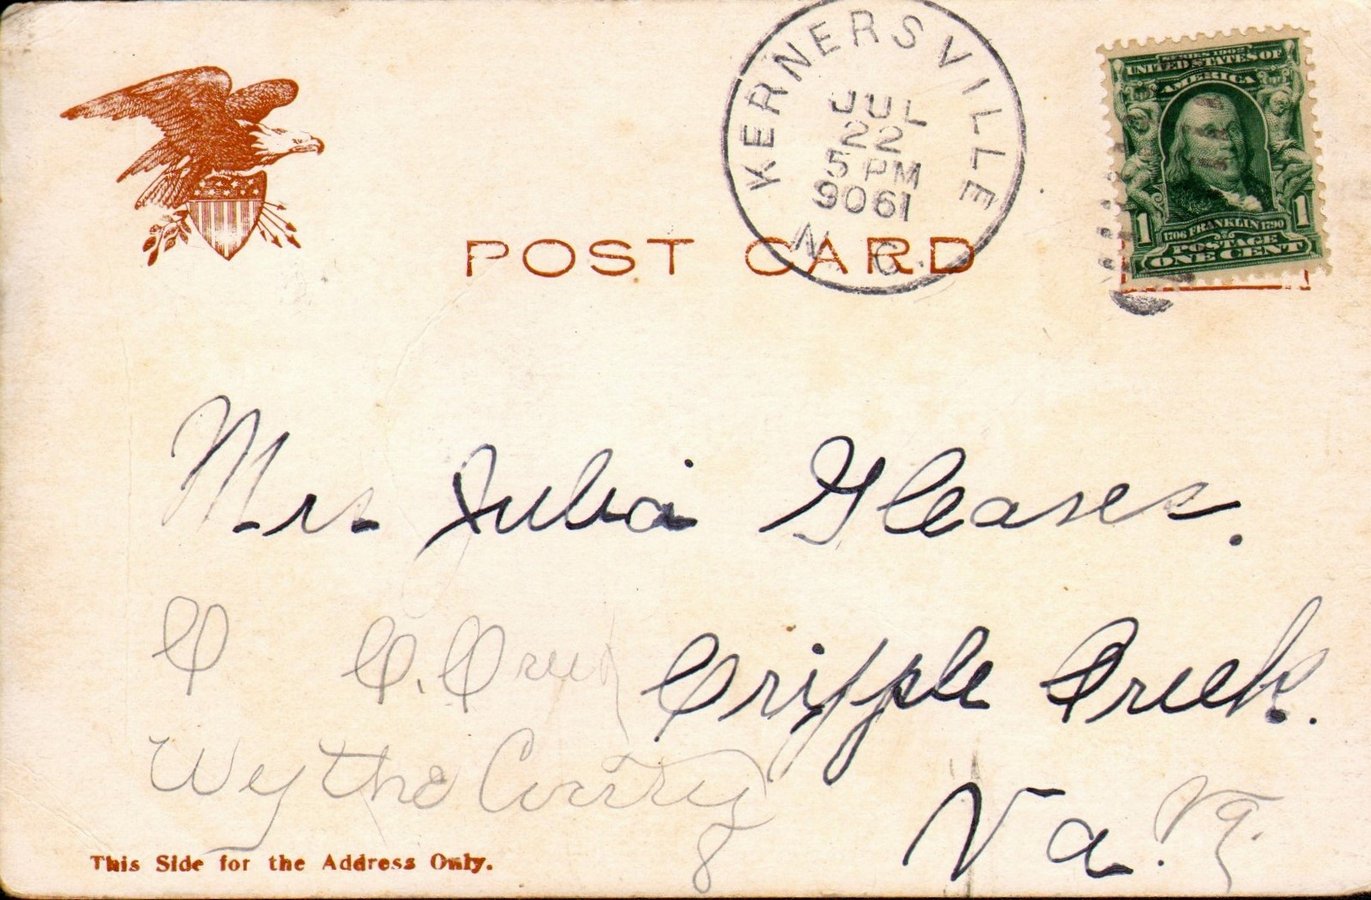 KERNERSVILLE
JUL
22
5 PM
9061
N. C.
SERIES 1902
UNITED STATES OF
AMERICA
1706 FRANKLIN 1790
1 1
POSTAGE
ONE CENT
POST CARD
Mrs Julia Gleases.
C C. Creek Cripple Creek.
Wythe County
Va. Va.
This Side for the Address Only.